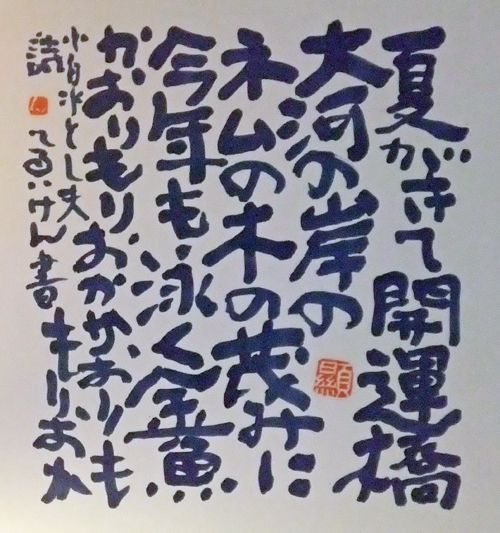 夏がきて開運橋
大河の岸の
ネムの木の茂みに
今年も泳ぐ金魚
かおりもりおかかおりも
もりおか
小泉とし夫
詩
てるいけん書
顕